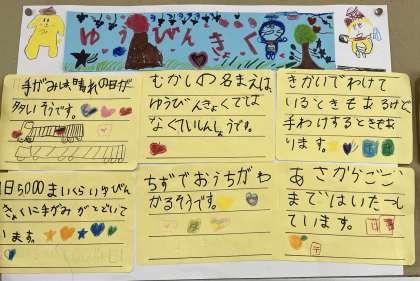 ゆうびんきょく
手がみは、晴れの日が
多いそうです。
むかしの名まえは、
ゆうびんきょくでは
なくていしんしょうです。
きかいでわけて
いるときもあるけど
手わけするときもあ
ります。
1日5,000まいくらいゆうびん
きょくに手がみがとどいて
います。
ちずでおうちがわ
かるそうです。
あさからごご
まではいたつし
ています。
〒